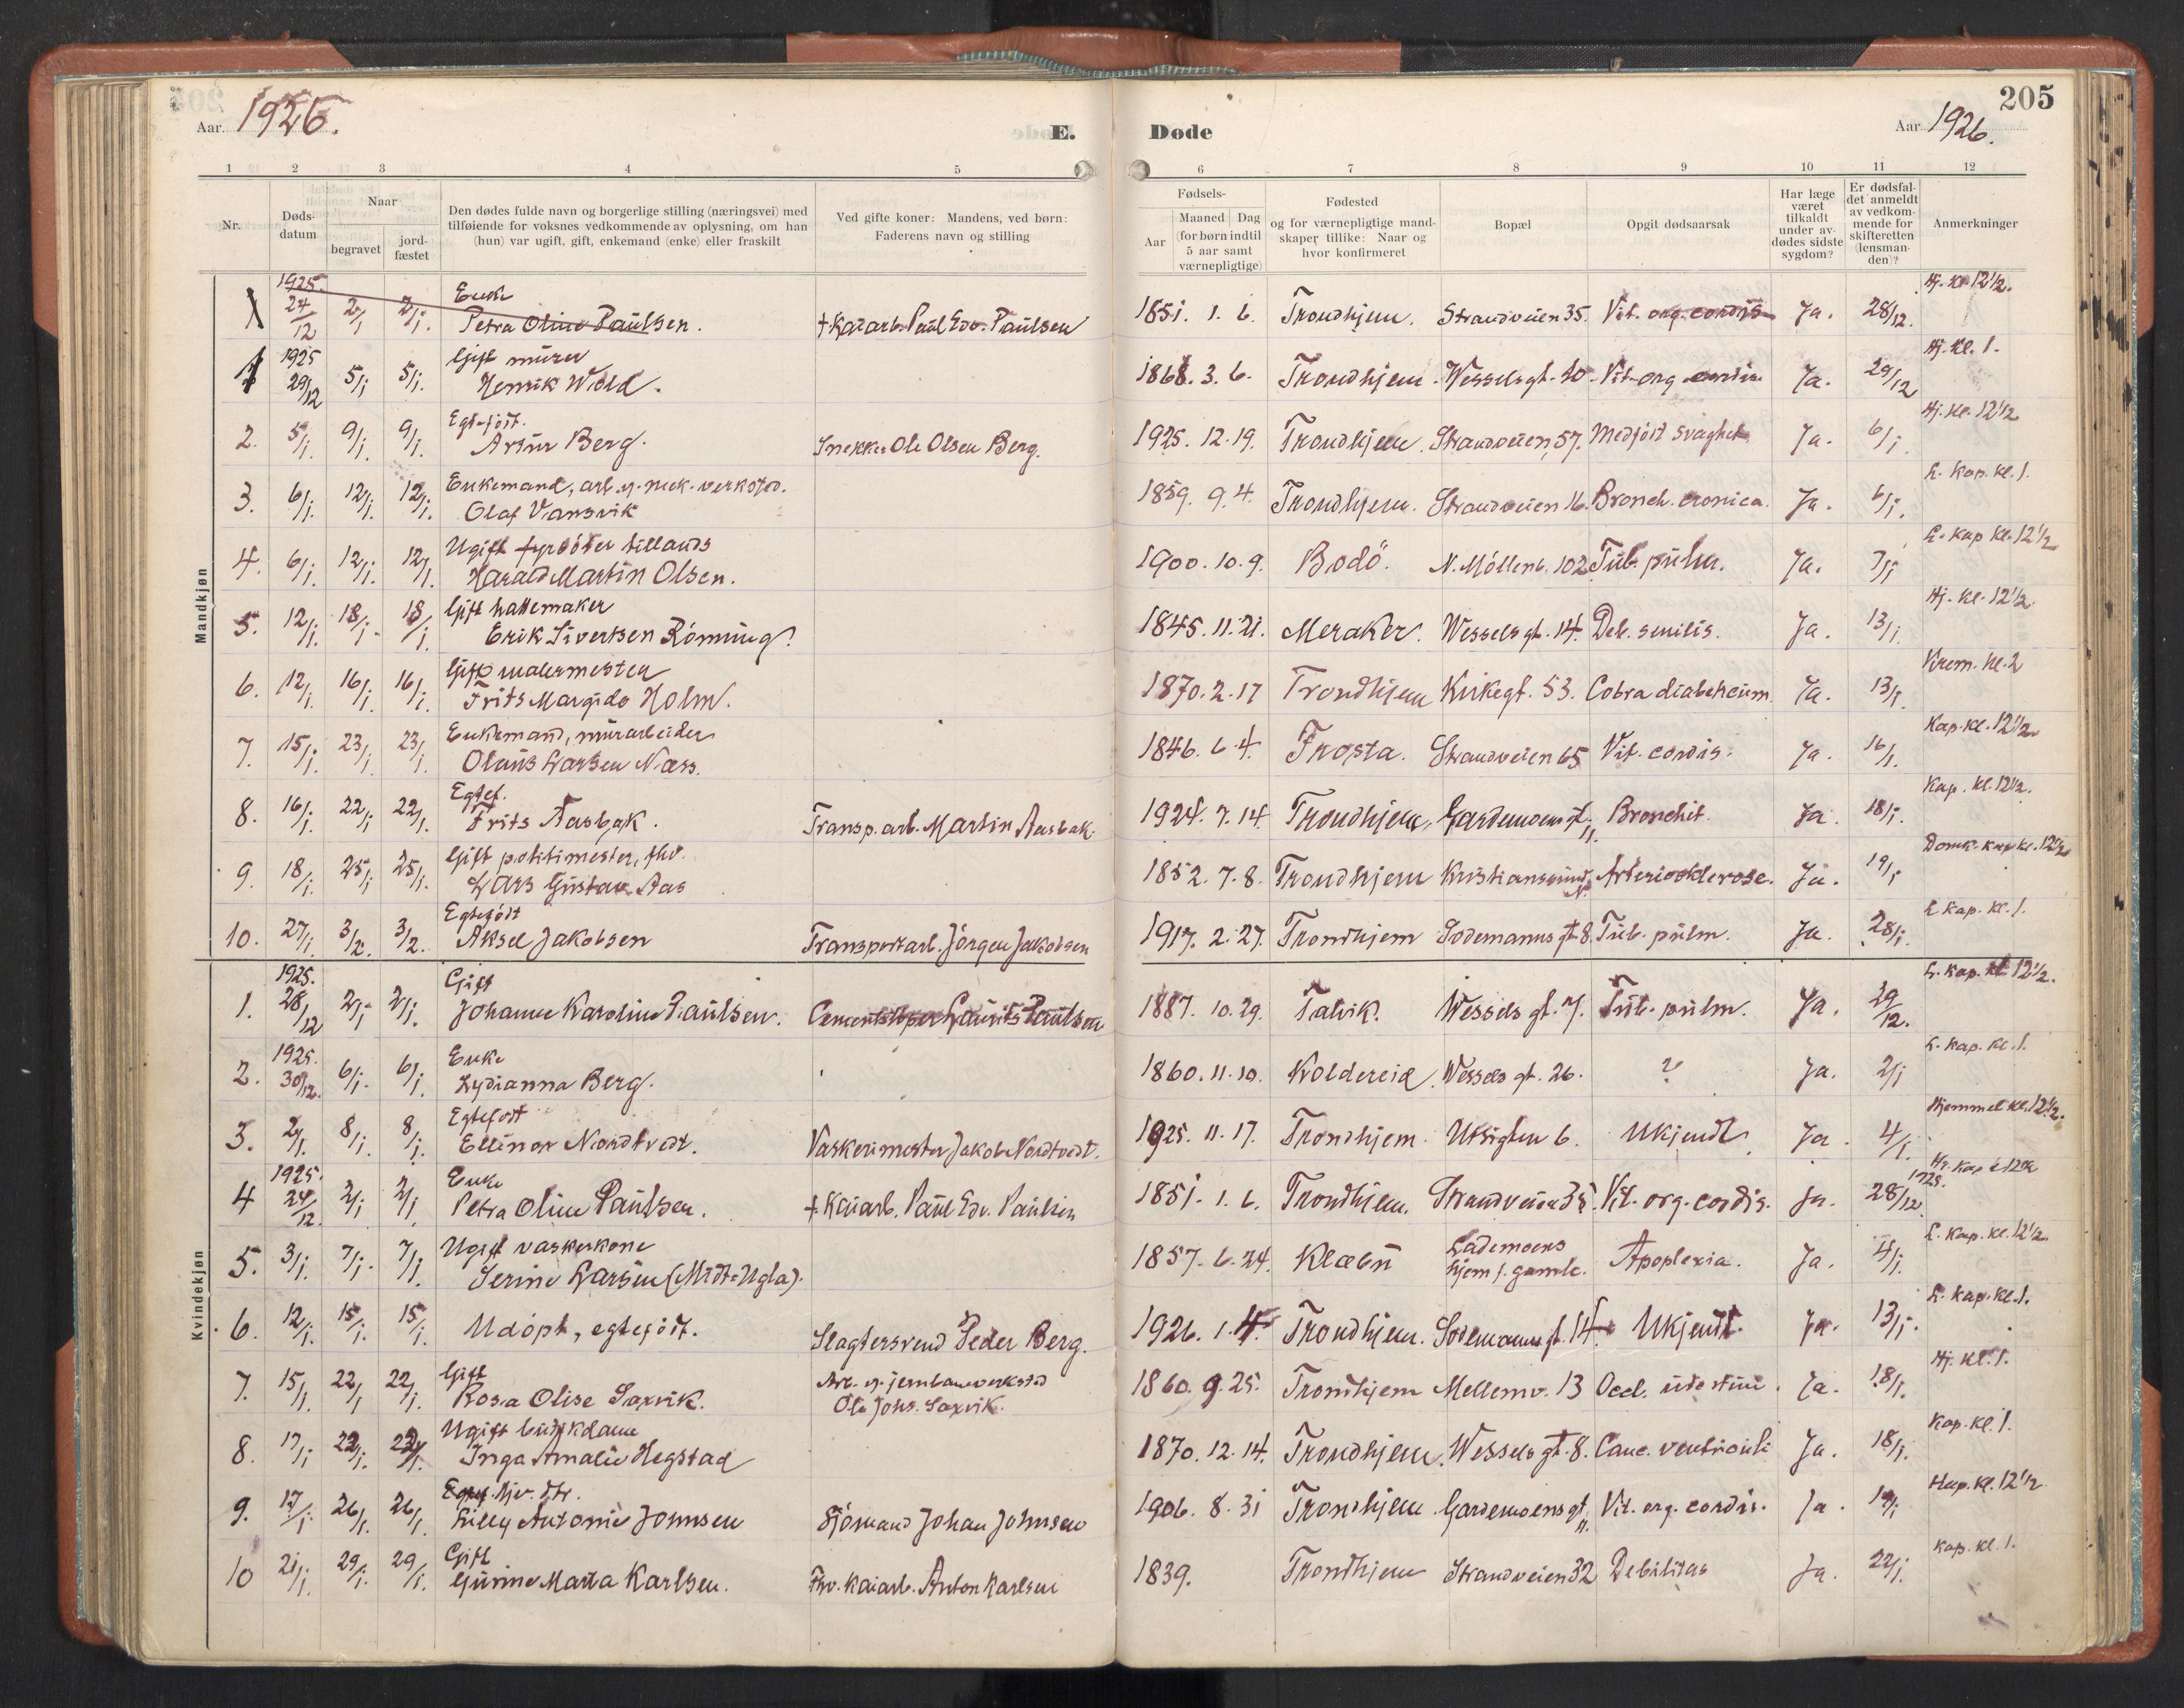 205
Aar. 1926.
E.
Døde
Aar 1926.
1 2 3 4 5 6 7 8 9 10 11 12
Nr.
Døds-
datum
Naar
begravet
jord-
fæstet
Den dødes fulde navn og borgerlige stilling (næringsvei) med
tilføiende for voksnes vedkommende av oplysning, om han
(hun) var ugift, gift, enkemand (enke) eller fraskilt
Ved gifte koner: Mandens, ved børn:
Faderens navn og stilling
Fødsels-
Aar
Maaned Dag
(for børn indtil
5 aar samt
værnepligtige)
Fødested
og for værnepligtige mand-
skaper tillike: Naar og
hvor konfirmeret
Bopæl
Opgit dødsaarsak
Har læge
været
tilkaldt
under av-
dødes sidste
sygdom?
Er dødsfal-
det anmeldt
av vedkom-
mende for
skifteretten
(lensman-
den)?
Anmerkninger
Mandkjøn
1925. Enke Hj. kl 12½.
1 24/12 2/1 2/1. Petra Oline Paulsen. + Kaiarb. Paul Edv. Paulsen 1851. 1. 6. Trondhjem. Strandveien 35. Vit. org. cordis Ja. 28/12.
1925 Gift murer Hj. kl. 1.
1 29/12 5/1 5/1. Henrik Wold. 1868. 3. 6. Trondhjem. Wesselsgt. 20. Vit. org. cordis. Ja. 29/12
Egtefødt. Hj. kl. 12½
2. 5/1 9/1. 9/1. Artur Berg. Snekker Ole Olsen Berg. 1925. 12. 19. Trondhjem. Strandveien 57. Medfödt svaghet Ja. 6/1
Enkemand, arb. v. mek. verksted. L. kap. kl. 1.
3. 6/1. 12/1. 12/1. Olaf Vansvik 1859. 9. 4. Trondhjem. Strandveien 16. Bronch. cronica. Ja. 6/1.
Ugift fyrböter tillands L. kap kl. 12½
4. 6/1. 12/1. 12/1. Harald Martin Olsen. 1900. 10. 9. Bodö. N. Möllenb. 102 Tub. pulm. Ja. 7/1
Gift hattemaker Hj. kl. 12½
5. 12/1. 18/1. 18/1 Erik Sivertsen Rönning. 1845. 11. 21. Meraker. Wesselsgt. 14. Deb. senilis. Ja. 13/1.
Gift malermester Krem. kl. 2
6. 12/1. 16/1. 16/1. Frits Margido Holm. 1870. 2. 17 Trondhjem Kirkegt. 53. Cobra diabeticum. Ja. 13/1.
Enkemand, murarbeider Kap. kl. 12½
7. 15/1. 23/1. 23/1. Olaus Larsen Næss. 1846. 6. 4. Frosta. Strandveien 65 Vit. cordis. Ja. 16/1.
Egtef. Kap. kl. 12½.
8. 16/1. 22/1. 22/1. Frits Aasbak. Transp. arb. Martin Aasbak. 1924. 7. 14. Trondhjem, Gardemoensgt. 11 Bronchit. Ja. 18/1.
Gift politimester, fhv. Domk. kap kl. 12½
9. 18/1. 25/1 25/1. Lars Gustav Aas 1852. 7. 8. Trondhjem Kristiansund N. Arteriosklerose. Ja. 19/1
Egtefödt L kap. kl. 1.
10. 27/1. 3/2. 3/2. Aksel Jakobsen Transportarb. Jörgen Jakobsen 1917. 2. 27. Trondhjem Sodemannsgt 8. Tub. pulm. Ja. 28/1.
Kvindekjøn
1925. Gift L. kap. kl. 12½.
1. 28/12 2/1 2/1. Johanne Karoline Paulsen. Cementstöper Laurits Paulsen 1887. 10. 29. Talvik. Wessels gt. 7. Tub. pulm. Ja. 29/12.
1925. Enke L. kap. kl. 1.
2. 30/12. 6/1. 6/1. Lydianna Berg. 1860. 11. 10. Koldereid. Wessels gt. 26. ? Ja. 2/1
Egtefödt Hjemmet kl. 12½.
3. 2/1. 8/1. 8/1. Ellinor Nordtvedt. Vaskerimester Jakob Nordtvedt. 1925. 11. 17. Trondhjem. Utsigten 6. Ukjendt Ja. 4/1.
1925. Enke 1925.
4 24/12. 2/1 2/1 Petra Oline Paulsen. + Kaiarb. Paul Edv. Paulsen 1851. 1. 6. Trondhjem. Strandveien 35. Vit. org. cordis. Ja. 28/12
Ugift vaskerkone L. kap. kl. 12½.
5. 3/1. 7/1. 7/1 Serine Larsen (Midt-Ugla). 1857. 6. 24. Klæbu Lademoens hjem f. gamle. Apoplexia. Ja. 4/1.
L. kap. kl. 1.
6. 12/1. 15/1. 15/1. Udöpt, egtefödt. Slagtersvend Peder Berg. 1926. 1. 4. Trondhjem. Sodemannsgt. 14. Ukjendt. Ja. 13/1.
Gift Arb. v. jernbaneverksted Hj. kl. 1.
7. 15/1. 22/1 22/1. Rosa Olise Saxvik. Ole Johs. Saxvik. 1860. 9. 25. Trondhjem Mellemv. 13 Ja. 18/1.
Ugift butikdame Kap. kl. 1.
8. 17/1 22/1. 22/1. Inga Amalie Hegstad 1870. 12. 14. Trondhjem. Wessels gt. 8. Canc. ventriculi Ja. 18/1.
Egtef. hjv. dtr. Kap. kl. 12½
9. 17/1 26/1. 26/1. Lilly Antonie Johnsen Sjömand Johan Johnsen 1906. 8. 31 Trondhjem. Gardemoensgt. 11. Vit. org. cordis. Ja. 19/1
Gift Kap. kl. 1.
10 21/1. 29/1. 29/1. Gurine Marta Karlsen. Fhv. kaiarb. Anton Karlsen 1839. Trondhjem Strandveien 32 Debilitas Ja. 22/1.